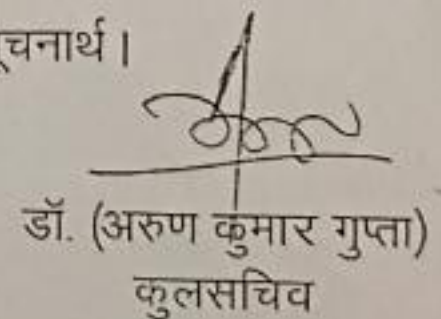 सूचनार्थ।
डॉ. (अरुण कुमार गुप्ता)
कुलसचिव